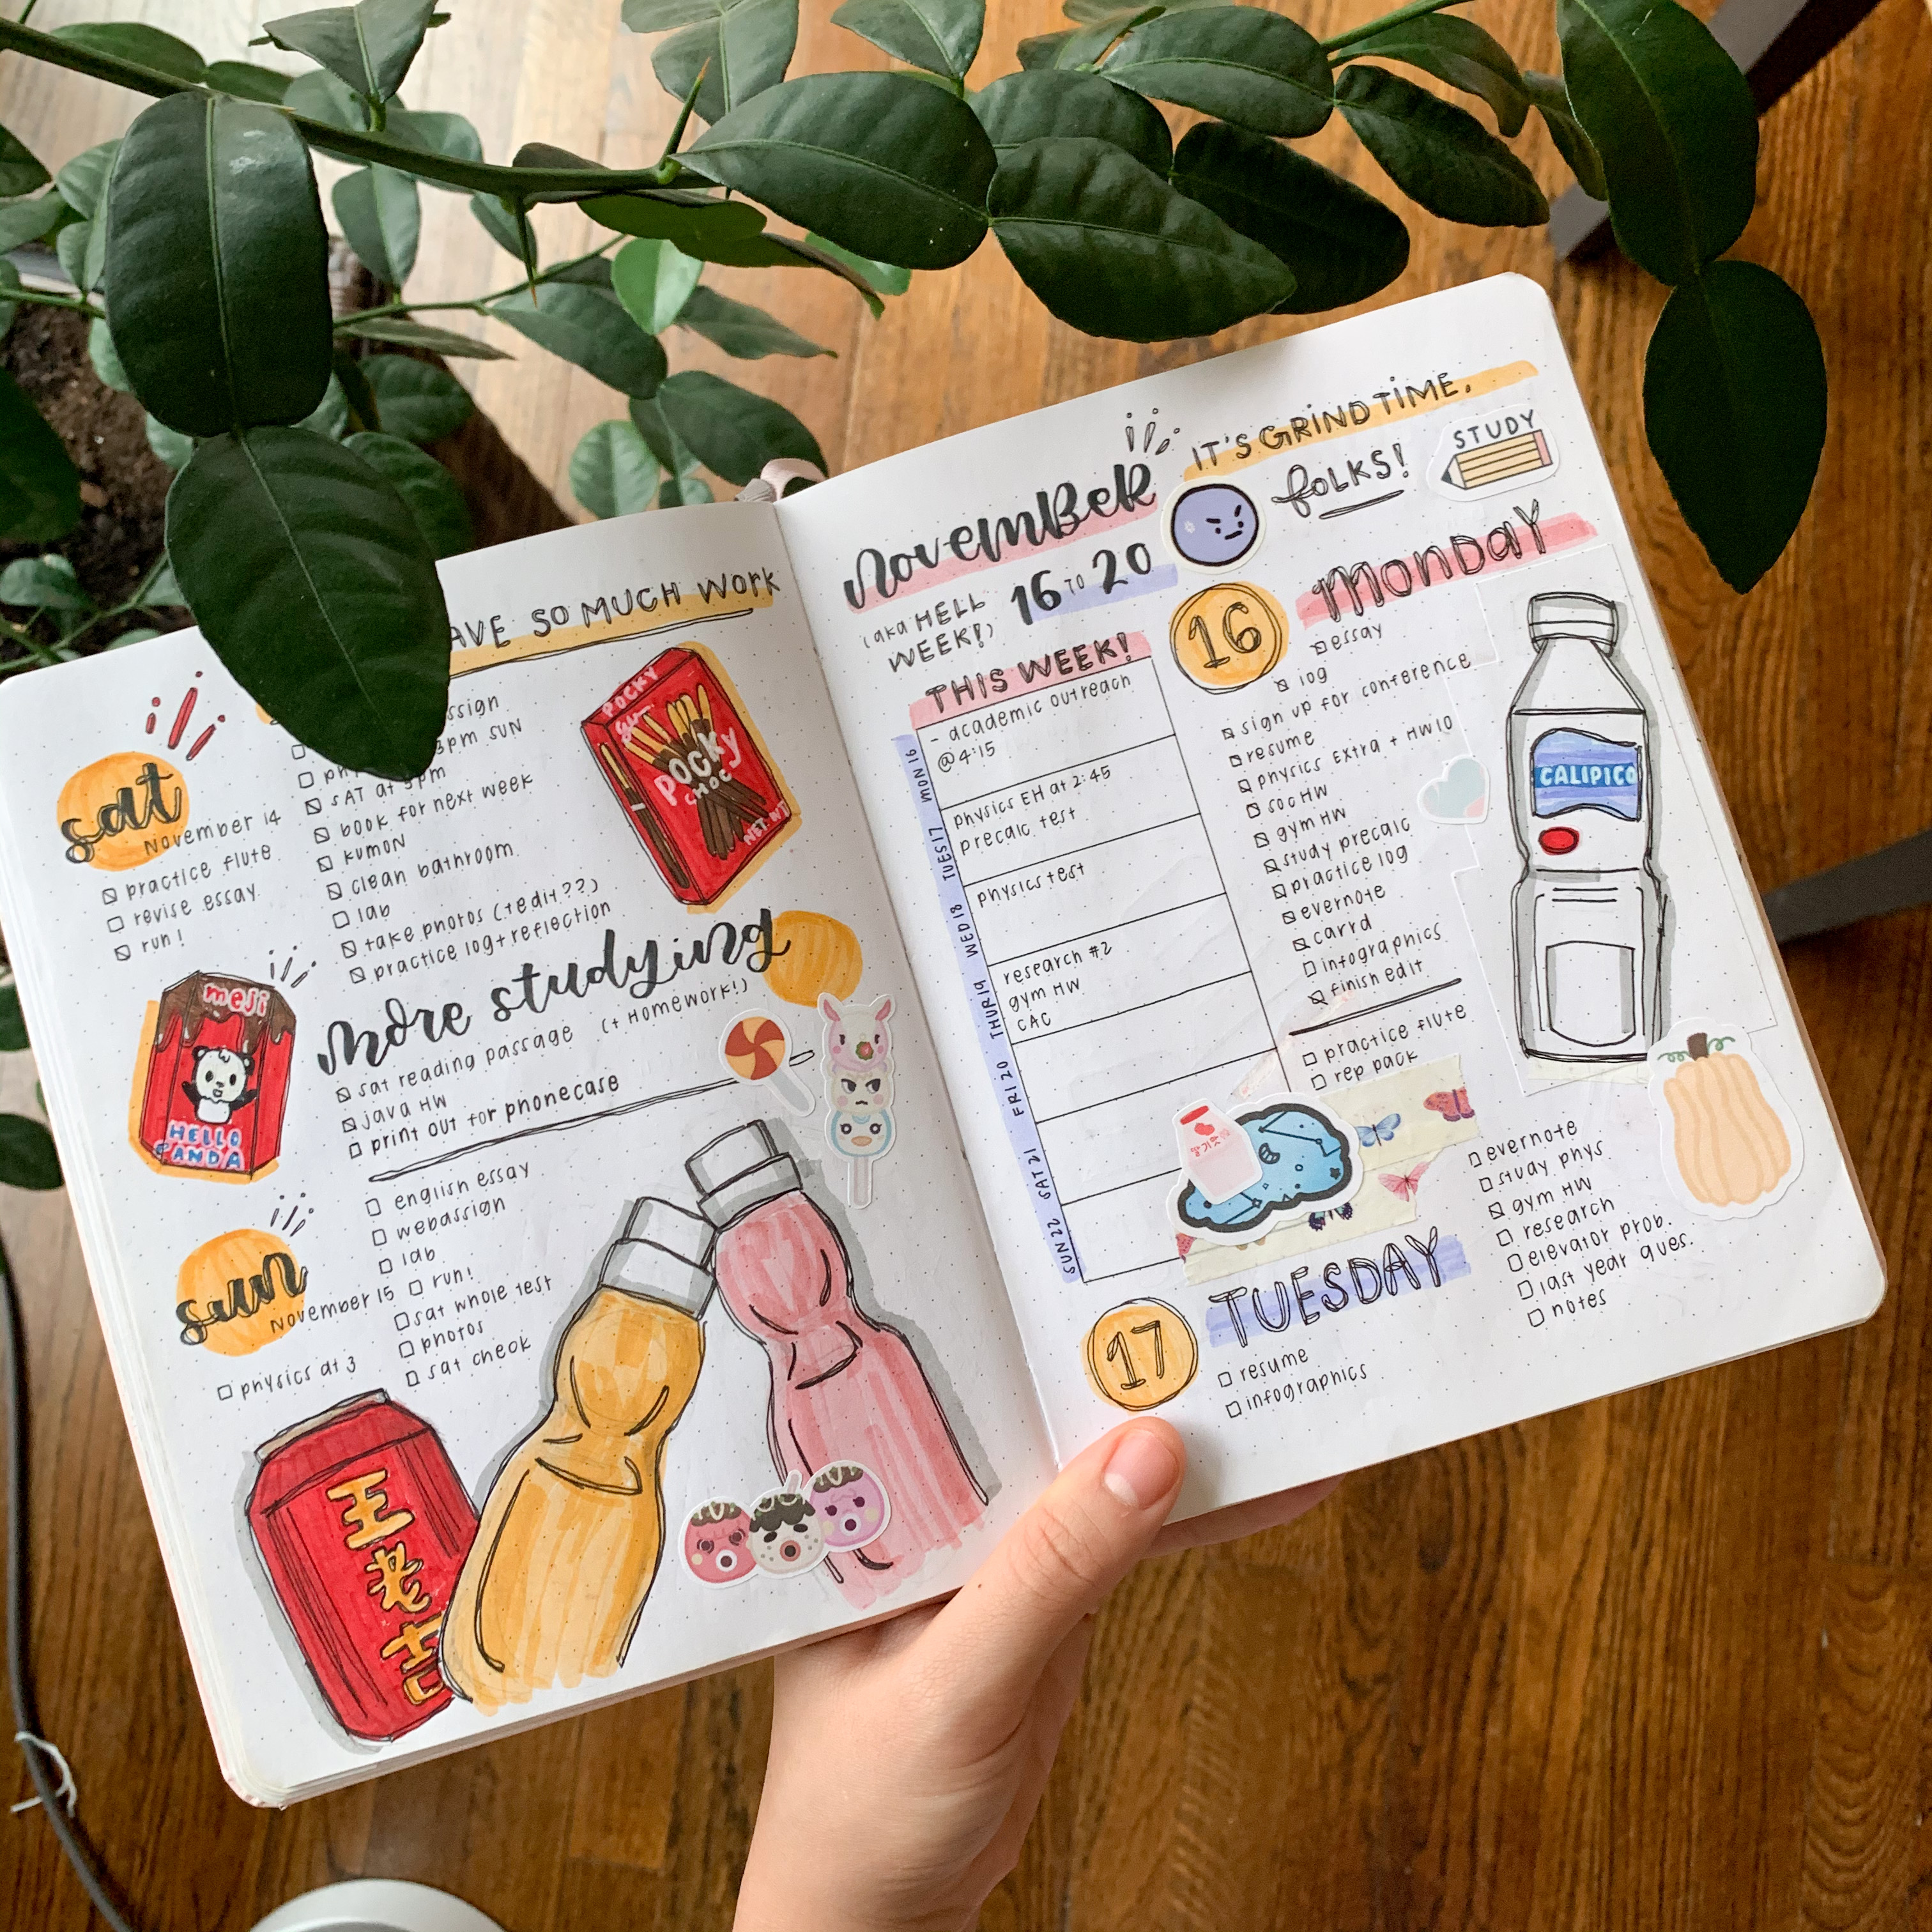 SO MUCH WORK
sat
November 14
practice flute
revise essay
run!
3pm SUN
SAT at 3pm
book for next week
kumon
clean bathroom
lab
take photos (+edit??)
practice log+reflection
POCKY
POCKY
CHOC
NET.WT
more studying
(+ Homework!)
sat reading passage
java HW
print out for phonecase
meji
HELLO
PANDA
sun
November 15
physics at 3
english essay
webassign
lab
run!
sat whole test
photos
sat check
王老吉
November
16 TO 20
(aka HELL
WEEK!)
IT'S GRIND TIME.
folks!
STUDY
THIS WEEK!
MON 16
- academic outreach
@4:15
TUES 17
physics EH at 2:45
precalc test
WED 18
physics test
THUR 19
research #2
gym HW
CAC
FRI 20
SAT 21
SUN 22
16
Monday
essay
log
sign up for conference
resume
physics Extra + HW10
soc HW
gym HW
study precalc
practice log
evernote
carrd
infographics
finish edit
practice flute
rep pack
CALIPICO
17
TUESDAY
resume
infographics
evernote
study phys
gym HW
research
elevator prob.
last year ques.
notes